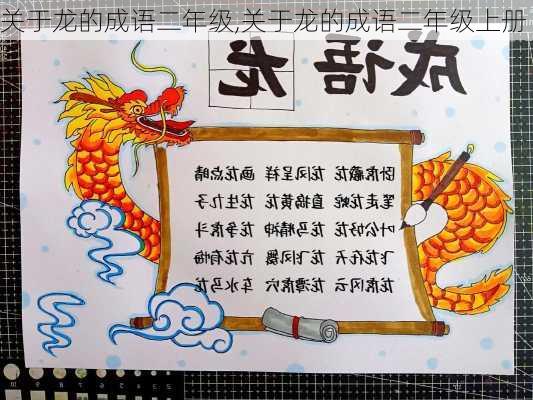 关于龙的成语二年级,关于龙的成语二年级上册
成语 龙
卧虎藏龙 龙凤呈祥 画龙点睛
笔走龙蛇 直捣黄龙 龙生九子
叶公好龙 龙马精神 龙争虎斗
飞龙在天 龙飞凤舞 亢龙有悔
龙虎风云 龙潭虎穴 车水马龙